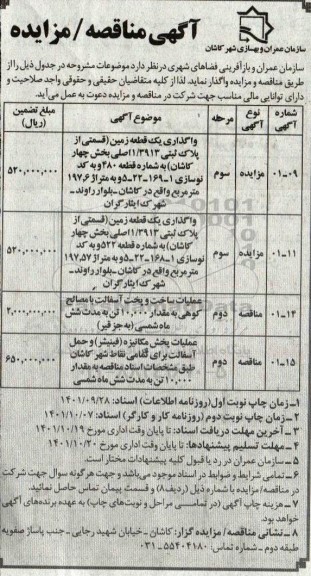 آگهی مناقصه/ مزایده
سازمان عمران و بهسازی شهر کاشان
سازمان عمران و بازآفرینی فضاهای شهری در نظر دارد موضوعات مشروحه در جدول ذیل را از
طریق مناقصه و مزایده واگذار نماید. لذا از کلیه متقاضیان حقیقی و حقوقی واجد صلاحیت و
دارای توانایی مالی مناسب جهت شرکت در مناقصه و مزایده دعوت به عمل می‌آید.
شماره آگهی نوع آگهی مرحله موضوع آگهی مبلغ تضمین (ریال)
۰۱-۰۹ مزایده سوم ۵۲۰,۰۰۰,۰۰۰
واگذاری یک قطعه زمین (قسمتی از
پلاک ثبتی ۱/۳۹۱۳ اصلی بخش چهار
کاشان) به شماره قطعه ۲۸۰ و به کد
نوسازی ۱-۱۶۹-۲۲-۵ و به متراژ ۱۹۷,۶
متر مربع واقع در کاشان-بلوار راوند-
شهرک ایثارگران
۰۱-۱۱ مزایده سوم ۵۲۰,۰۰۰,۰۰۰
واگذاری یک قطعه زمین (قسمتی از
پلاک ثبتی ۱/۳۹۱۳ اصلی بخش چهار
کاشان) به شماره قطعه ۵۲۲ و به کد
نوسازی ۱-۱۶۸-۲۲-۵ و به متراژ ۱۹۷,۵۷
متر مربع واقع در کاشان-بلوار راوند-
شهرک ایثارگران
۰۱-۱۴ مناقصه دوم ۲,۰۰۰,۰۰۰,۰۰۰
عملیات ساخت و پخت آسفالت با مصالح
کوهی به مقدار ۱۰,۰۰۰ تن به مدت شش
ماه شمسی (به جز قیر)
۰۱-۱۵ مناقصه دوم ۶۵۰,۰۰۰,۰۰۰
عملیات پخش مکانیزه (فینیشر) و حمل
آسفالت برای تمامی نقاط شهر کاشان
طبق مشخصات اسناد مناقصه به مقدار
۱۰,۰۰۰ تن به مدت شش ماه شمسی
۱-زمان چاپ نوبت اول (روزنامه اطلاعات) اسناد: ۱۴۰۱/۰۹/۲۸
۲-زمان چاپ نوبت دوم (روزنامه کار و کارگر) اسناد: ۱۴۰۱/۱۰/۰۷
۳-آخرین مهلت دریافت اسناد: تا پایان وقت اداری مورخ ۱۴۰۱/۱۰/۱۹
۴-مهلت تسلیم پیشنهادها: تا پایان وقت اداری مورخ ۱۴۰۱/۱۰/۲۰
۵-سازمان عمران در رد یا قبول کلیه پیشنهادات مختار است.
۶-تمامی شرایط و ضوابط در اسناد موجود می‌باشد و جهت هرگونه سوال جهت شرکت
در مناقصه/ مزایده با شماره ذیل (ردیف۸) و قسمت پیمان تماس حاصل نمائید.
۷-هزینه چاپ آگهی (در تمامی مراحل و نوبت‌های چاپ) به عهده برنده‌های آگهی
خواهد بود.
۸-نشانی مناقصه/ مزایده گزار: کاشان - خیابان شهید رجایی- جنب پاساژ صفویه
طبقه دوم - شماره تماس: ۵۵۴۰۴۱۸۰-۰۳۱